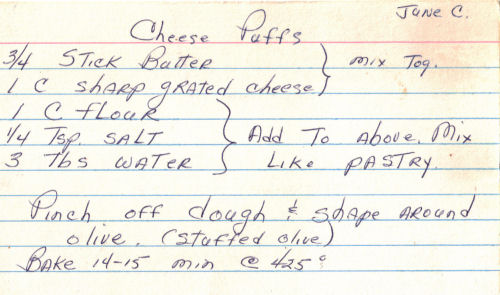 June C.
Cheese Puffs
3/4 Stick Butter } mix Tog.
1 C sharp grated cheese
1 C flour
1/4 Tsp. SALT } Add To Above. Mix
3 Tbs WATER Like PASTRY.
Pinch off dough & shape around
olive. (stuffed olive)
BAKE 14-15 min @ 425°